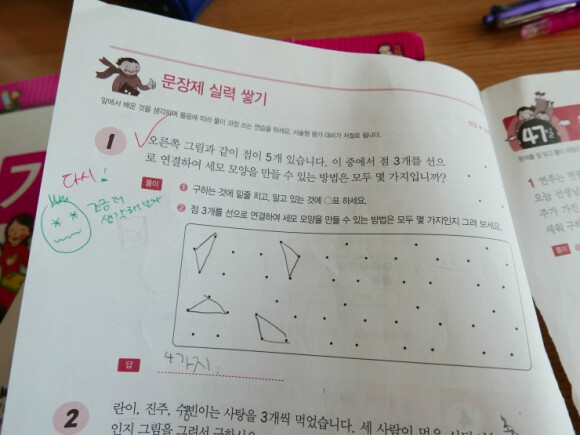 문장제 실력 쌓기
앞에서 배운 것을 생각하며 물음에 따라 풀이 과정 쓰는 연습을 하세요. 서술형 평가 대비가 저절로 됩니다.
1 오른쪽 그림과 같이 점이 5개 있습니다. 이 중에서 점 3개를 선으
로 연결하여 세모 모양을 만들 수 있는 방법은 모두 몇 가지입니까?
다시!
조금 더
생각해보자
풀이 ❶ 구하는 것에 밑줄 치고, 알고 있는 것에 ○표 하세요.
❷ 점 3개를 선으로 연결하여 세모 모양을 만들 수 있는 방법은 모두 몇 가지인지 그려 보세요.
답 4가지
2 란이, 진주, 수빈이는 사탕을 3개씩 먹었습니다. 세 사람이 먹은
인지 그림을 그려서 구하시오
47
1 연주는 먼
오늘 선생
주가 가진
세워 구하